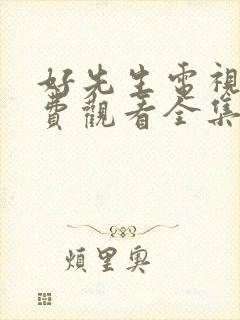 好先生電視
費觀看全集
煩里奧